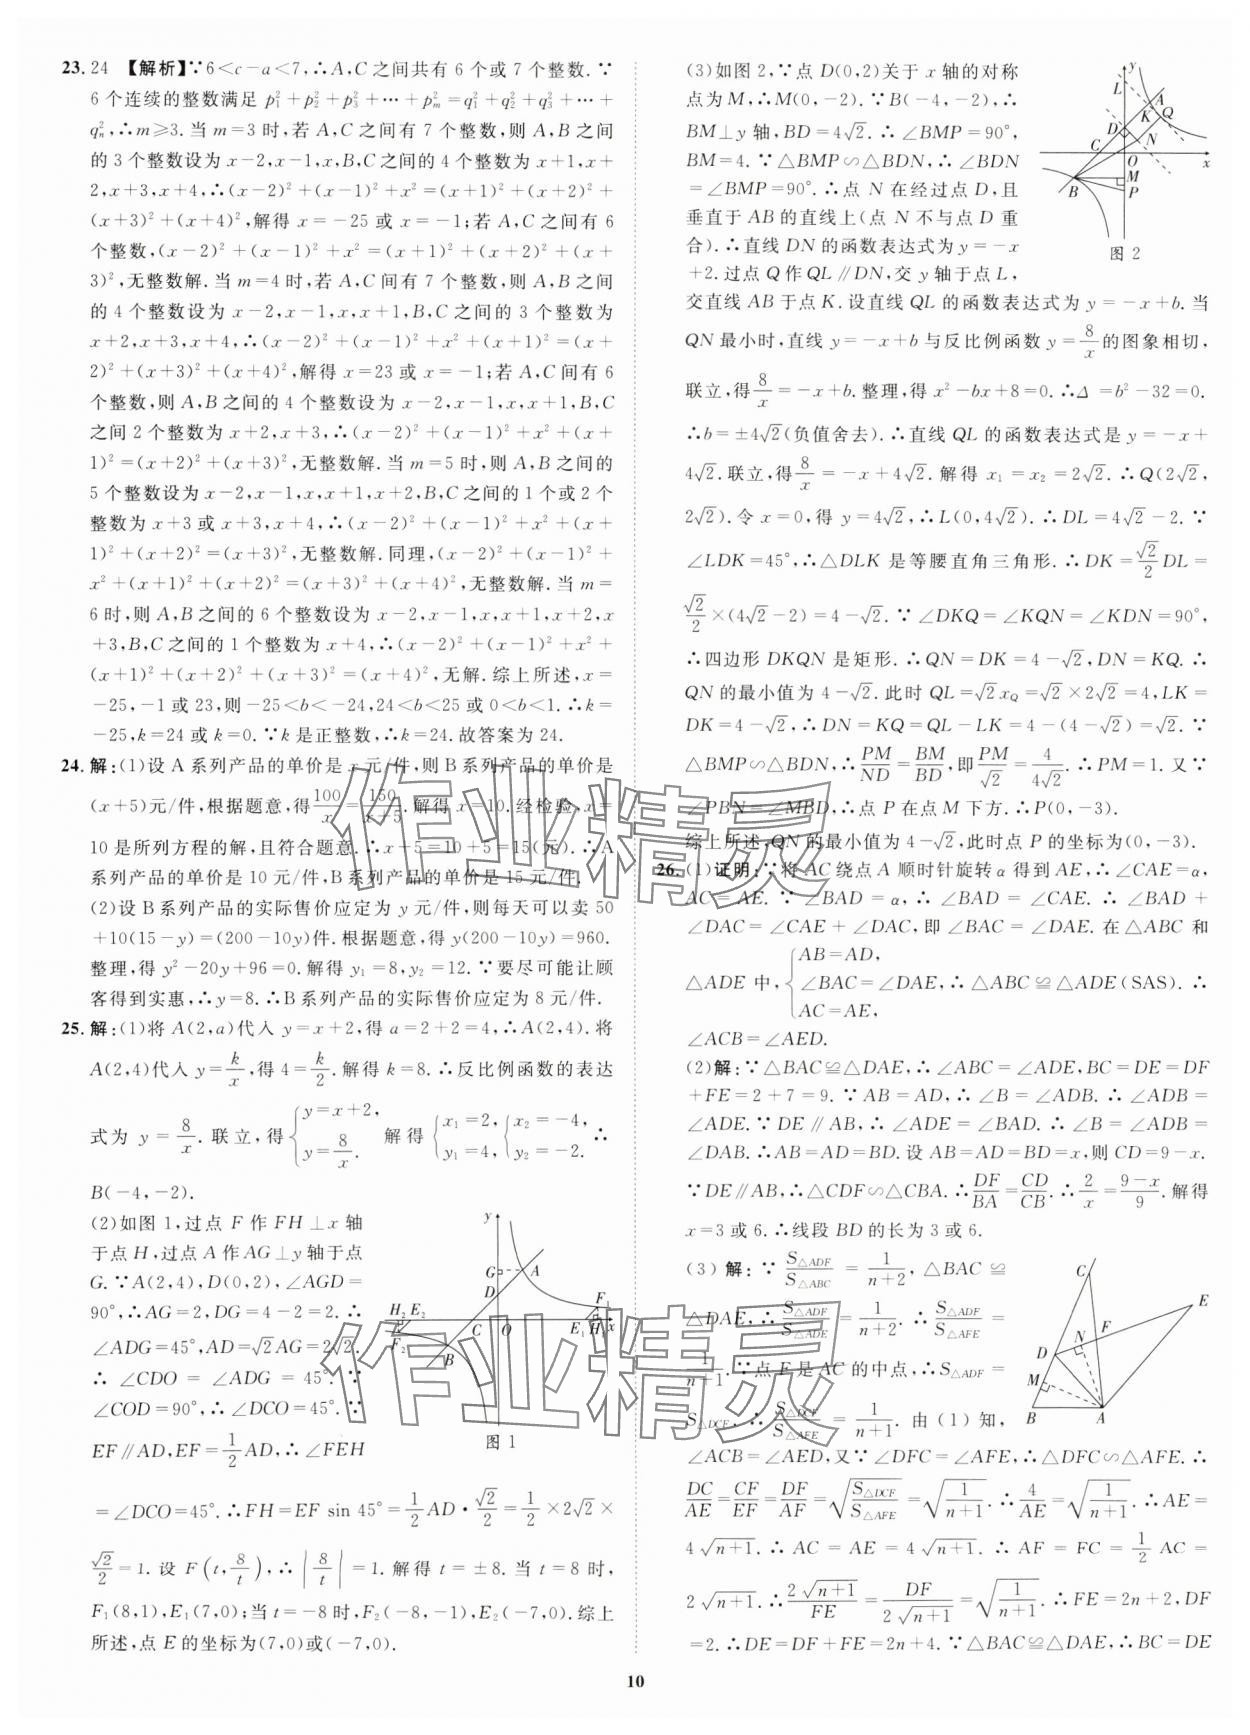 23. 24 【解析】∵6<c-a<7,∴A,C之间共有6个或7个整数.∵
6个连续的整数满足 p₁²+p₂²+p₃²+…+pₘ²=q₁²+q₂²+q₃²+…+
qₙ²,∴m≥3.当m=3时,若A,C之间有7个整数,则A,B之间
的3个整数设为x-2,x-1,x,B,C之间的4个整数为x+1,x+
2,x+3,x+4,∴(x-2)²+(x-1)²+x²=(x+1)²+(x+2)²+
(x+3)²+(x+4)²,解得x=-25或x=-1;若A,C之间有6
个整数,(x-2)²+(x-1)²+x²=(x+1)²+(x+2)²+(x+
3)²,无整数解.当m=4时,若A,C间有7个整数,则A,B之间
的4个整数设为x-2,x-1,x,x+1,B,C之间的3个整数为
x+2,x+3,x+4,∴(x-2)²+(x-1)²+x²+(x+1)²=(x+
2)²+(x+3)²+(x+4)²,解得x=23或x=-1;若A,C间有6
个整数,则A,B之间的4个整数设为x-2,x-1,x,x+1,B,C
之间2个整数为x+2,x+3,∴(x-2)²+(x-1)²+x²+(x+
1)²=(x+2)²+(x+3)²,无整数解.当m=5时,则A,B之间的
5个整数设为x-2,x-1,x,x+1,x+2,B,C之间的1个或2个
整数为x+3或x+3,x+4,∴(x-2)²+(x-1)²+x²+(x+
1)²+(x+2)²=(x+3)²,无整数解.同理,(x-2)²+(x-1)²+
x²+(x+1)²+(x+2)²=(x+3)²+(x+4)²,无整数解.当m=
6时,则A,B之间的6个整数设为x-2,x-1,x,x+1,x+2,x
+3,B,C之间的1个整数为x+4,∴(x-2)²+(x-1)²+x²+
(x+1)²+(x+2)²+(x+3)²=(x+4)²,无解.综上所述,x=
-25,-1或23,则-25<b<-24,24<b<25或0<b<1.∴k=
-25,k=24或k=0.∵k是正整数,∴k=24.故答案为24.
24. 解:(1)设A系列产品的单价是x元/件,则B系列产品的单价是
(x+5)元/件,根据题意,得100/x=150/(x+5).解得x=10.经检验,x=
10是所列方程的解,且符合题意.∴x+5=10+5=15(元).∴A
系列产品的单价是10元/件,B系列产品的单价是15元/件.
(2)设B系列产品的实际售价应定为y元/件,则每天可以卖50
+10(15-y)=(200-10y)件.根据题意,得y(200-10y)=960.
整理,得y²-20y+96=0.解得y₁=8,y₂=12.∵要尽可能让顾
客得到实惠,∴y=8.∴B系列产品的实际售价应定为8元/件.
25. 解:(1)将A(2,a)代入y=x+2,得a=2+2=4,∴A(2,4).将
A(2,4)代入y=k/x,得4=k/2.解得k=8.∴反比例函数的表达
式为y=8/x.联立,得{y=x+2, y=8/x. 解得{x₁=2, y₁=4, {x₂=-4, y₂=-2. ∴
B(-4,-2).
(2)如图1,过点F作FH⊥x轴
于点H,过点A作AG⊥y轴于点
G.∵A(2,4),D(0,2),∠AGD=
90°,∴AG=2,DG=4-2=2.∴
∠ADG=45°,AD=√2AG=2√2.
∴∠CDO=∠ADG=45°.∵
∠COD=90°,∴∠DCO=45°.∵
EF∥AD,EF=1/2AD,∴∠FEH
=∠DCO=45°.∴FH=EF sin 45°=1/2AD·√2/2=1/2×2√2×
√2/2=1.设F(t,8/t),∴|8/t|=1.解得t=±8.当t=8时,
F₁(8,1),E₁(7,0);当t=-8时,F₂(-8,-1),E₂(-7,0).综上
所述,点E的坐标为(7,0)或(-7,0).
y
G A
D
H₂ E₂ F₁
C O E₁ H₁ x
F₂
B
图1
(3)如图2,∵点D(0,2)关于x轴的对称
点为M,∴M(0,-2).∵B(-4,-2),∴
BM⊥y轴,BD=4√2.∴∠BMP=90°,
BM=4.∵△BMP∽△BDN,∴∠BDN
=∠BMP=90°.∴点N在经过点D,且
垂直于AB的直线上(点N不与点D重
合).∴直线DN的函数表达式为y=-x
+2.过点Q作QL∥DN,交y轴于点L,
y
L
A
K Q
D
N
C
O x
M
B P
图2
交直线AB于点K.设直线QL的函数表达式为y=-x+b.当
QN最小时,直线y=-x+b与反比例函数y=8/x的图象相切,
联立,得8/x=-x+b.整理,得x²-bx+8=0.∴Δ=b²-32=0.
∴b=±4√2(负值舍去).∴直线QL的函数表达式是y=-x+
4√2.联立,得8/x=-x+4√2.解得x₁=x₂=2√2.∴Q(2√2,
2√2).令x=0,得y=4√2,∴L(0,4√2).∴DL=4√2-2.∵
∠LDK=45°,∴△DLK是等腰直角三角形.∴DK=√2/2DL=
√2/2×(4√2-2)=4-√2.∵∠DKQ=∠KQN=∠KDN=90°,
∴四边形DKQN是矩形.∴QN=DK=4-√2,DN=KQ.∴
QN的最小值为4-√2.此时QL=√2x_Q=√2×2√2=4,LK=
DK=4-√2,∴DN=KQ=QL-LK=4-(4-√2)=√2.∵
△BMP∽△BDN,∴PM/ND=BM/BD,即PM/√2=4/(4√2).∴PM=1.又∵
∠PBN=∠MBD,∴点P在点M下方.∴P(0,-3).
综上所述,QN的最小值为4-√2,此时点P的坐标为(0,-3).
26. (1)证明:∵将AC绕点A顺时针旋转α得到AE,∴∠CAE=α,
AC=AE.∵∠BAD=α,∴∠BAD=∠CAE.∴∠BAD+
∠DAC=∠CAE+∠DAC,即∠BAC=∠DAE.在△ABC和
△ADE中,{AB=AD, ∠BAC=∠DAE, AC=AE, ∴△ABC≌△ADE(SAS).∴
∠ACB=∠AED.
(2)解:∵△BAC≌△DAE,∴∠ABC=∠ADE,BC=DE=DF
+FE=2+7=9.∵AB=AD,∴∠B=∠ADB.∴∠ADB=
∠ADE.∵DE∥AB,∴∠ADE=∠BAD.∴∠B=∠ADB=
∠DAB.∴AB=AD=BD.设AB=AD=BD=x,则CD=9-x.
∵DE∥AB,∴△CDF∽△CBA.∴DF/BA=CD/CB.∴2/x=(9-x)/9.解得
x=3或6.∴线段BD的长为3或6.
(3)解:∵S△ADF/S△ABC=1/(n+2),△BAC≌
△DAE,∴S△ADF/S△ADE=1/(n+2).∴S△ADF/S△AFE=
1/(n+1).∵点F是AC的中点,∴S△ADF=
S△DCF.∴S△DCF/S△AFE=1/(n+1).由(1)知,
C
E
F
N
D
M
B A
∠ACB=∠AED,又∵∠DFC=∠AFE,∴△DFC∽△AFE.∴
DC/AE=CF/EF=DF/AF=√(S△DCF/S△AFE)=√(1/(n+1)).∴4/AE=√(1/(n+1)).∴AE=
4√(n+1).∴AC=AE=4√(n+1).∴AF=FC=1/2AC=
2√(n+1).∴2√(n+1)/FE=DF/(2√(n+1))=√(1/(n+1)).∴FE=2n+2,DF
=2.∴DE=DF+FE=2n+4.∵△BAC≌△DAE,∴BC=DE
10
作业精灵
作业精灵